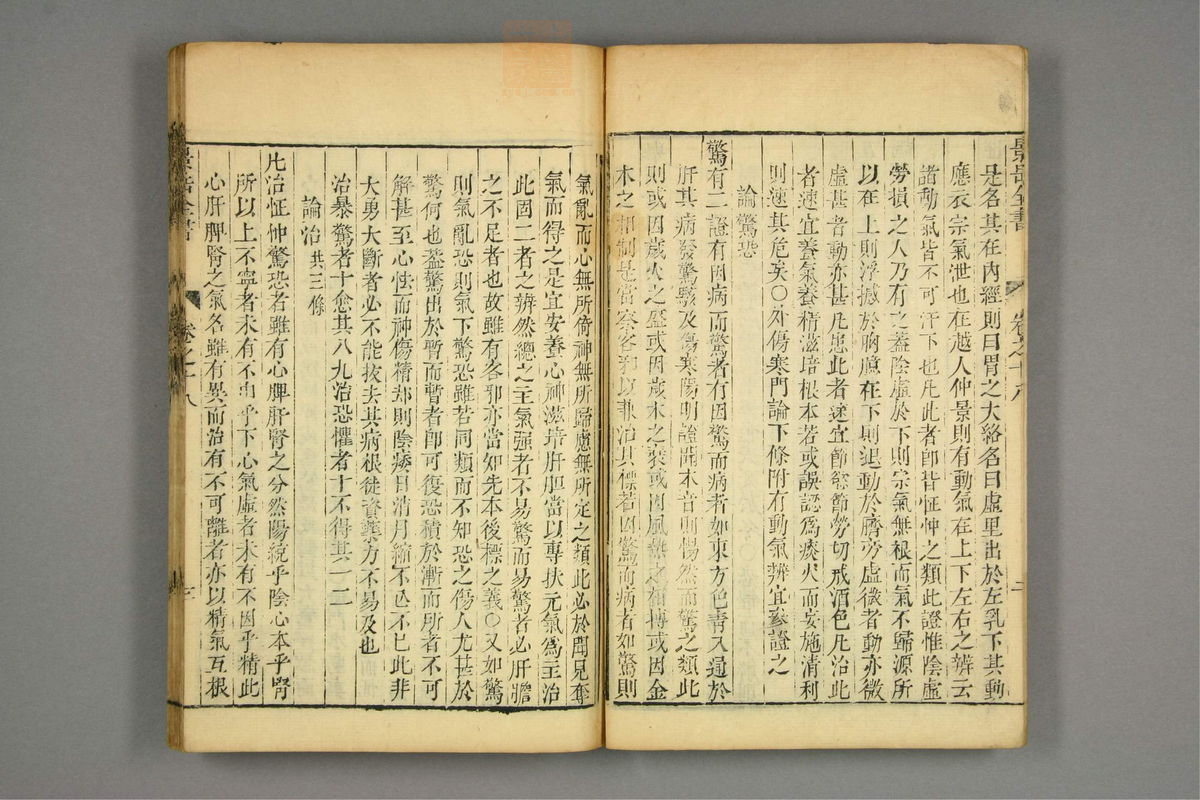 景岳全書
卷之十八
二
是名其在內經則曰胃之大絡名曰虛里出於左乳下其動
應衣宗氣泄也在越人仲景則有動氣在上下左右之辨云
諸動氣皆不可汗下也凡此者卽皆怔忡之類此證惟陰虛
勞損之人乃有之蓋陰虛於下則宗氣無根而氣不歸源所
以在上則浮撼於胸臆在下則振動於臍旁虛微者動亦微
虛甚者動亦甚凡患此者速宜節慾節勞切戒酒色凡治此
者速宜養氣養精滋培根本若或誤認爲痰火而妄施清利
則速其危矣○外傷寒門論下條附有動氣辨宜參證之
論驚恐
驚有二證有因病而驚者有因驚而病者如東方色青入通於
肝其病發驚駭及傷寒陽明證聞木音則惕然而驚之類此
則或因歲火之盛或因歲木之衰或因風熱之相搏或因金
木之相制是當察客邪以兼治其標若因驚而病者如驚則
氣亂而心無所倚神無所歸慮無所定之類此必於聞見奪
氣而得之是宜安養心神滋培肝胆當以專扶元氣爲主治
此固二者之辨然總之主氣强者不易驚而易驚者必肝膽
之不足者也故雖有客邪亦當知先本後標之義○又如驚
則氣亂恐則氣下驚恐雖若同類而不知恐之傷人尤甚於
驚何也蓋驚出於暫而暫者卽可復恐積於漸而所者不可
解甚至心怯而神傷精却則陰痿日消月縮不亡不已此非
大勇大斷者必不能拔去其病根徒資藥方不易及也
治暴驚者十愈其八九治恐懼者十不得其一二
論治共三條
凡治怔忡驚恐者雖有心脾肝腎之分然陽統乎陰心本乎腎
所以上不寧者未有不由乎下心氣虛者未有不因乎精此
心肝脾腎之氣名雖有異而治有不可離者亦以精氣互根
景岳全書
卷之十八
三